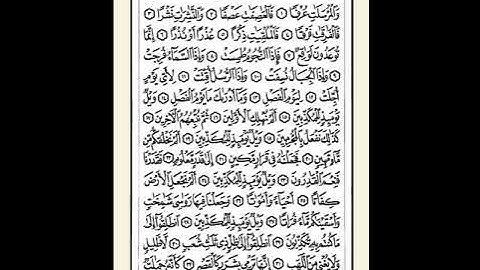 وَالْمُرْسَلَاتِ عُرْفًا ١ فَالْعَاصِفَاتِ عَصْفًا ٢ وَالنَّاشِرَاتِ نَشْرًا ٣
فَالْفَارِقَاتِ فَرْقًا ٤ فَالْمُلْقِيَاتِ ذِكْرًا ٥ عُذْرًا أَوْ نُذْرًا ٦ إِنَّمَا
تُوعَدُونَ لَوَاقِعٌ ٧ فَإِذَا النُّجُومُ طُمِسَتْ ٨ وَإِذَا السَّمَاءُ فُرِجَتْ
٩ وَإِذَا الْجِبَالُ نُسِفَتْ ١٠ وَإِذَا الرُّسُلُ أُقِّتَتْ ١١ لِأَيِّ يَوْمٍ
أُجِّلَتْ ١٢ لِيَوْمِ الْفَصْلِ ١٣ وَمَا أَدْرَاكَ مَا يَوْمُ الْفَصْلِ ١٤ وَيْلٌ
يَوْمَئِذٍ لِلْمُكَذِّبِينَ ١٥ أَلَمْ نُهْلِكِ الْأَوَّلِينَ ١٦ ثُمَّ نُتْبِعُهُمُ الْآخِرِينَ ١٧
كَذَٰلِكَ نَفْعَلُ بِالْمُجْرِمِينَ ١٨ وَيْلٌ يَوْمَئِذٍ لِلْمُكَذِّبِينَ ١٩ أَلَمْ نَخْلُقْكُمْ مِنْ
مَاءٍ مَهِينٍ ٢٠ فَجَعَلْنَاهُ فِي قَرَارٍ مَكِينٍ ٢١ إِلَىٰ قَدَرٍ مَعْلُومٍ ٢٢ فَقَدَرْنَا
فَنِعْمَ الْقَادِرُونَ ٢٣ وَيْلٌ يَوْمَئِذٍ لِلْمُكَذِّبِينَ ٢٤ أَلَمْ نَجْعَلِ الْأَرْضَ
كِفَاتًا ٢٥ أَحْيَاءً وَأَمْوَاتًا ٢٦ وَجَعَلْنَا فِيهَا رَوَاسِيَ شَامِخَاتٍ
وَأَسْقَيْنَاكُمْ مَاءً فُرَاتًا ٢٧ وَيْلٌ يَوْمَئِذٍ لِلْمُكَذِّبِينَ ٢٨ انْطَلِقُوا إِلَىٰ
مَا كُنْتُمْ بِهِ تُكَذِّبُونَ ٢٩ انْطَلِقُوا إِلَىٰ ظِلٍّ ذِي ثَلَاثِ شُعَبٍ ٣٠ لَا ظَلِيلٍ
وَلَا يُغْنِي مِنَ اللَّهَبِ ٣١ إِنَّهَا تَرْمِي بِشَرَرٍ كَالْقَصْرِ ٣٢ كَأَنَّهُ جِمَالَتٌ